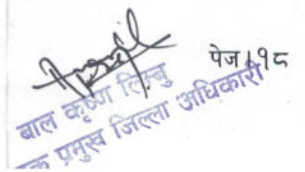 पेज १९८
बाल कृष्ण लिम्बु
क प्रमुख जिल्ला अधिकारी